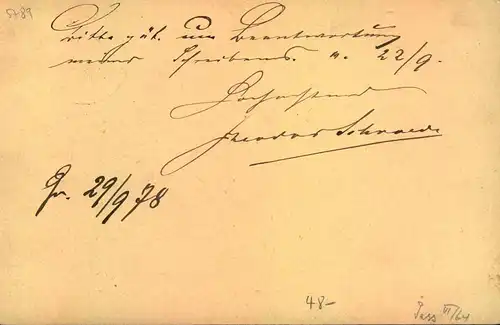 5789
Bitte güt. um Beantwortung
meines Schreibens v. 22/9.
Hochachtend
Theodor Schroeder
Gr. 29/9 78
48-
VI/64